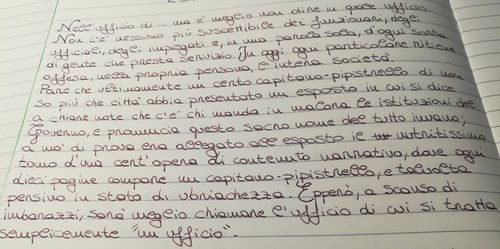 Nell'ufficio di... ma è meglio non dire in quale ufficio.
Non c'è nessuno più suscettibile dei funzionari, degli
ufficiali, degli impiegati e, in una parola sola, d'ogni sorta
di gente che presta servizio. In oggi ogni particolare ritiene
offesa, nella propria persona, l'intera società.
Pare che ultimamente un certo capitano-pipistrello di non
so più che città abbia presentato un esposto in cui si dice
a chiare note che c'è chi manda in malora le istituzioni del
Governo, e pronuncia questo sacro nome del tutto invano;
a mo' di prova era allegato all'esposto il nutritissimo
tomo d'una cert'opera di contenuto narrativo, dove ogni
dieci pagine compare un capitano-pipistrello, e talvolta
persino in stato di ubriachezza. Epperò, a scanso di
imbarazzi, sarà meglio chiamare l'ufficio di cui si tratta
semplicemente "un ufficio".